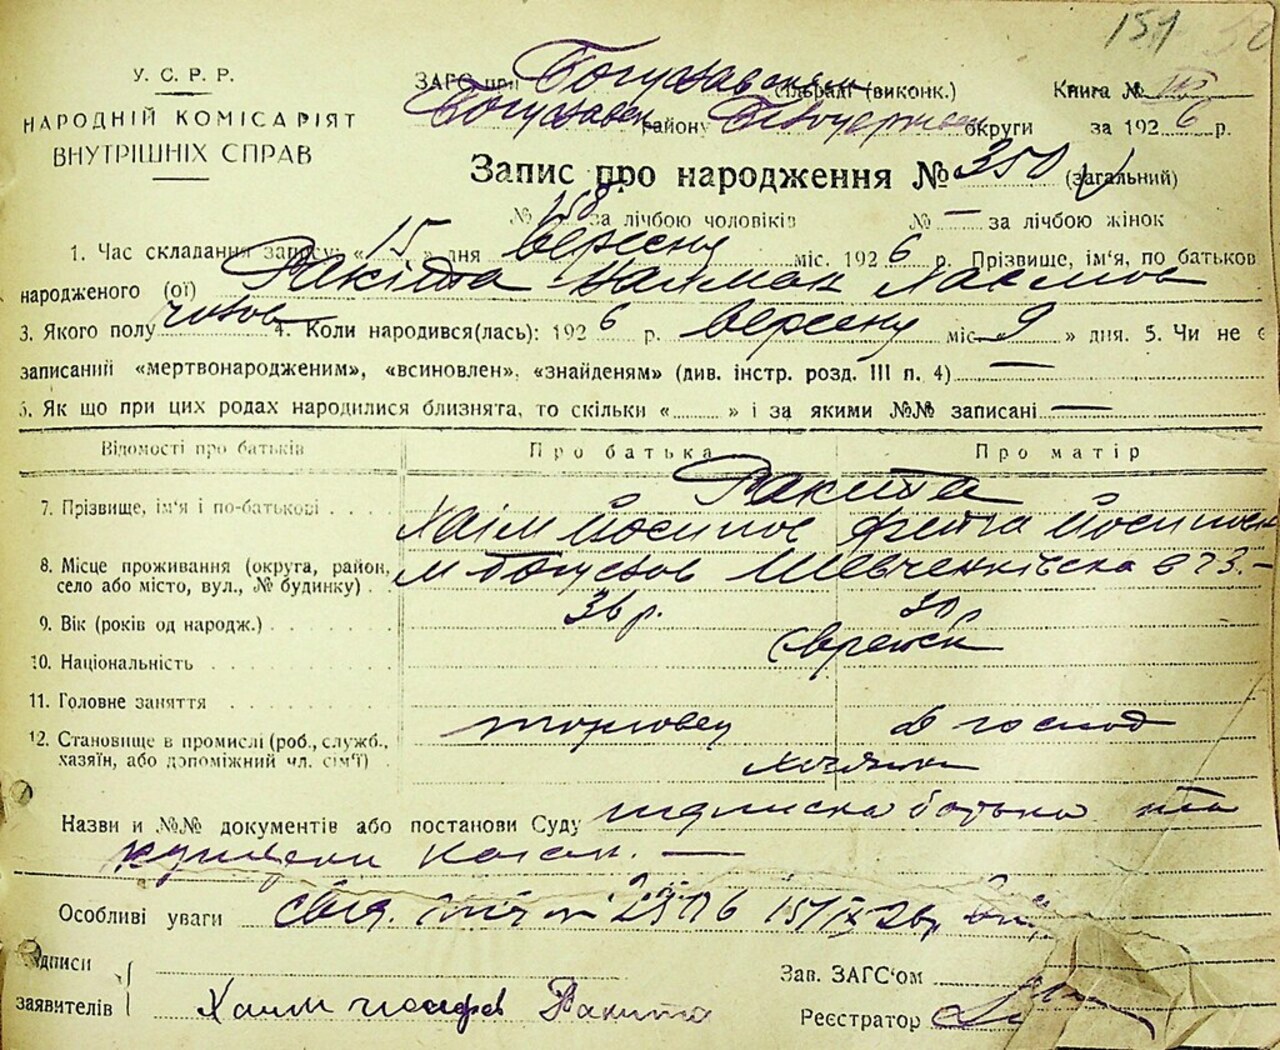 151
У. С. Р. Р.
НАРОДНІЙ КОМІСАРІЯТ
ВНУТРІШНІХ СПРАВ
ЗАГС при Богуславськім сільраді (виконк.) Книга №
Богуславськ району Білоцерківськ округи за 1926 р.
Запис про народження № 350 (загальний)
№ 158 за лічбою чоловіків № — за лічбою жінок
1. Час складання запису: « 15 » дня вересня міс. 1926 р. Прізвище, ім'я, по батьков
народженого (ої) Ракіта Хаімов
3. Якого полу чолов 4. Коли народився(лась): 1926 р. вересня міс. 9 » дня. 5. Чи не є
записаний «мертвонародженим», «всиновлен», «знайденям» (див. інстр. розд. III п. 4) —
6. Як що при цих родах народилися близнята, то скільки « » і за якими №№ записані —
Відомості про батьків Про батька Про матір
Ракита
7. Прізвище, ім'я і по-батькові Хаім Йосипов Фейга Йосипов
8. Місце проживання (округа, район, м Богуслав Шевченківська 73. –
село або місто, вул., № будинку)
9. Вік (років од народж.) 36 р. 30 р
10. Національність Єврейск
11. Головне заняття
торговец д господ
12. Становище в промислі (роб., служб.,
хазяїн, або допоміжний чл. сім'ї)
Назви и №№ документів або постанови Суду підписка батька та
Коган. —
Особливі уваги свід.
Підписи
заявителів Хаим Иосифов Ракита
Зав. ЗАГС'ом
Реєстратор